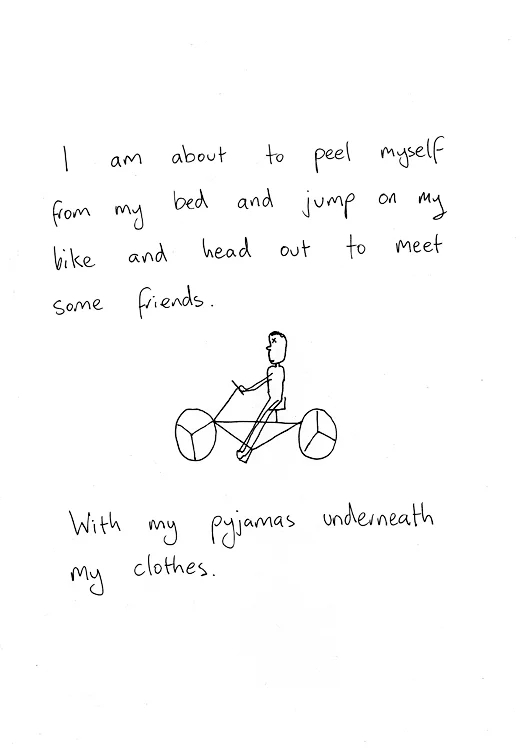 I am about to peel myself
from my bed and jump on my
bike and head out to meet
some friends.
With my pyjamas underneath
my clothes.